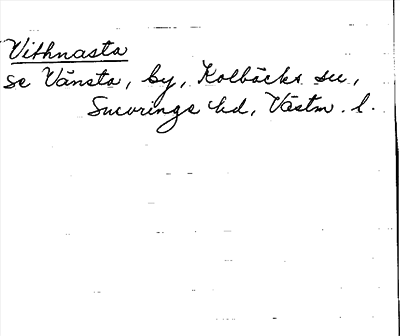 Vithnasta
se Vänsta, by, Kolbäcks sn,
Snevringe hd, Västm. l.